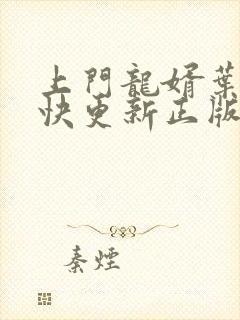 上門龍婿葉
快更新正版
秦煙